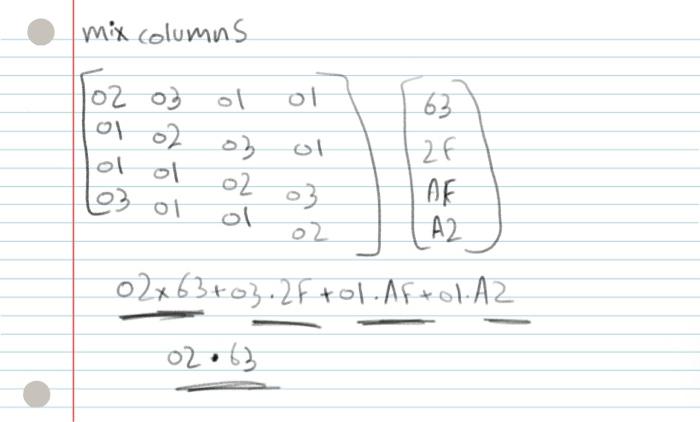 mix columns
02 03 01 01 63
01 02 03 01 2F
01 01 02 03 AF
03 01 01 02 A2
02×63+03.2F+01.AF+01.A2
02•63